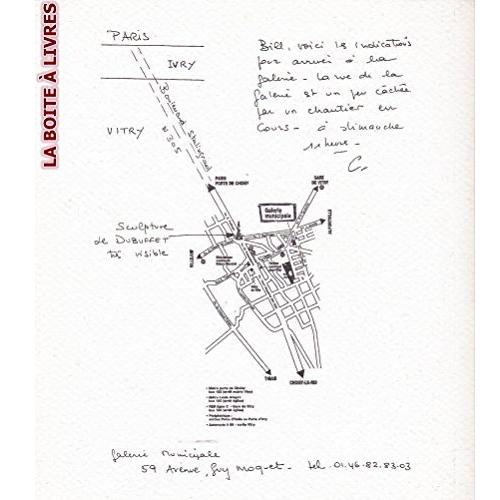 LA BOITE À LIVRES
PARIS
IVRY
VITRY
Boulevard Stalingrad
N 305
Bill, voici les indications
pour arriver à la
galerie - La vue de la
Galerie est un peu câchée
par un chantier en
cours - à dimanche
11 heures -
C.
PARIS
PORTE DE CHOISY
GARE
DE VITRY
Galerie
municipale
ALFORTVILLE
Sculpture
de DUBUFFET
très visible
VILLEJUIF
THIAIS
CHOISY-LE-ROI
Galerie Municipale
59 Avenue, Guy Moquet - tel. 01.46.82.83.03